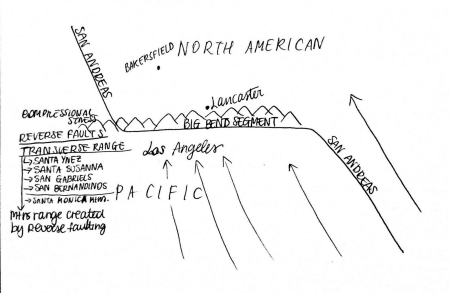 SAN ANDREAS
BAKERSFIELD
NORTH AMERICAN
Lancaster
COMPRESSIONAL
STRESS
REVERSE FAULTS
BIG BEND SEGMENT
TRANSVERSE RANGE
Los Angeles
SAN ANDREAS
→ SANTA YNEZ
→ SANTA SUSANNA
→ SAN GABRIELS
→ SAN BERNANDINOS
→ SANTA MONICA MTNS.
PACIFIC
Mtns range created
by reverse faulting